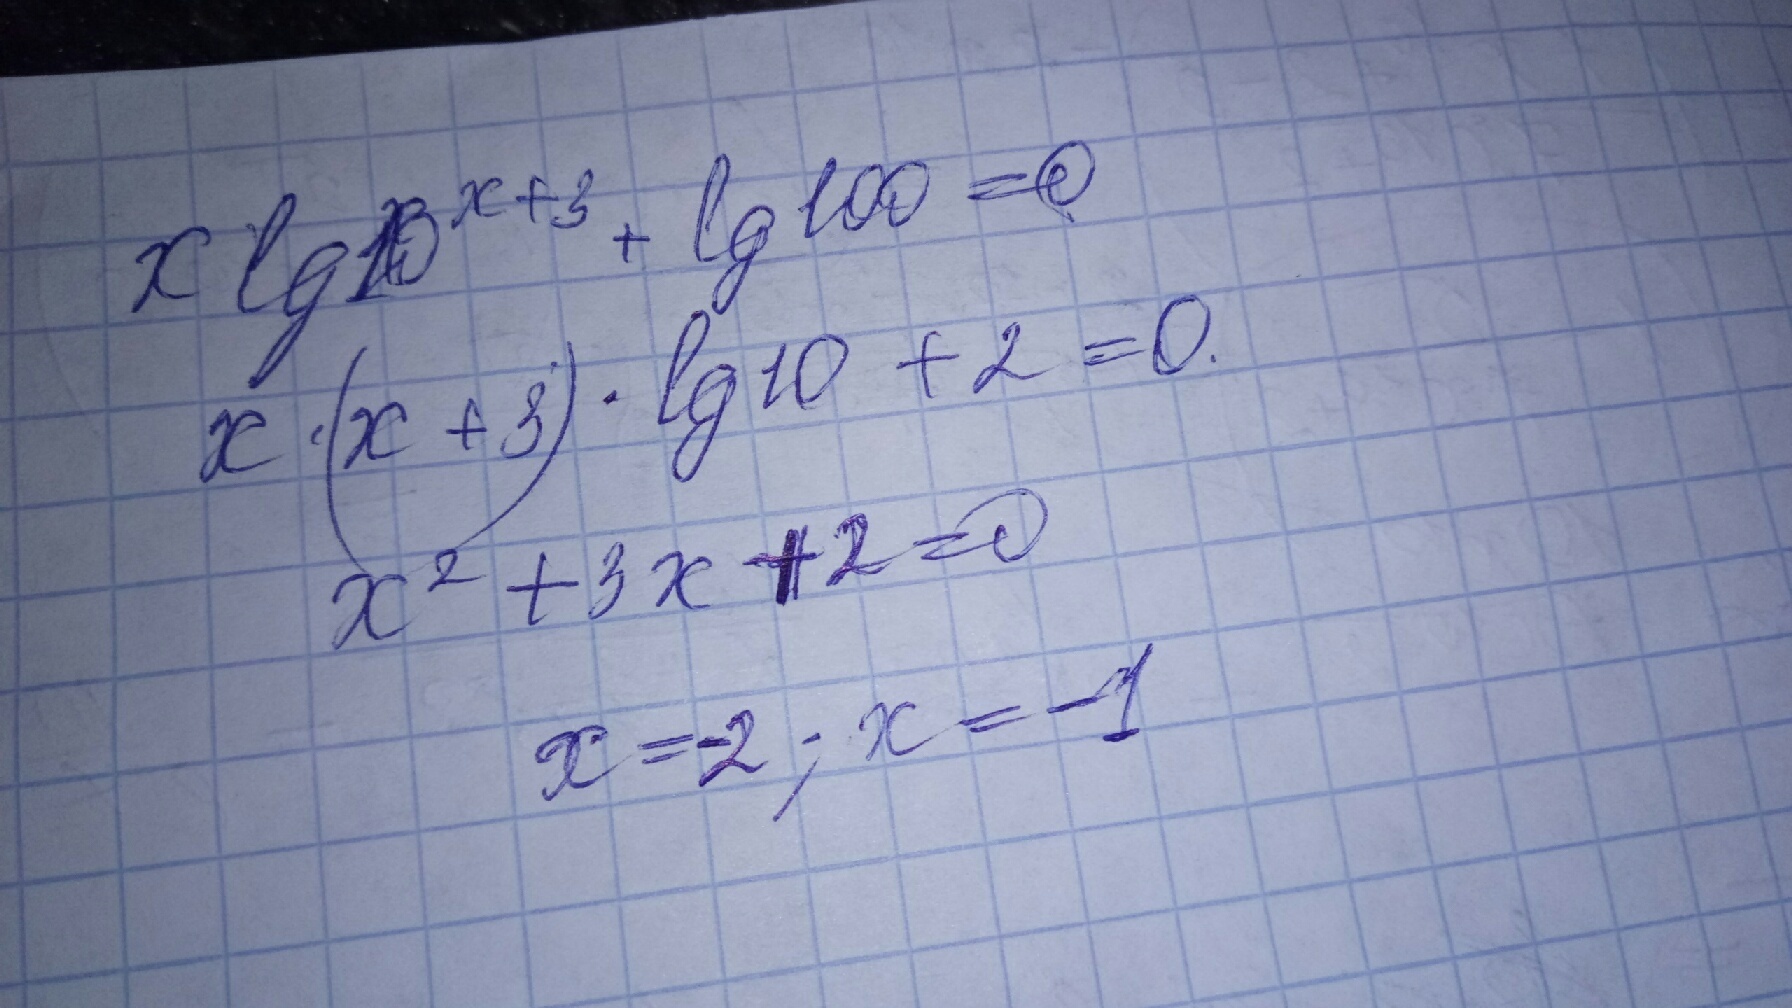 x lg10^(x+3) + lg100=0
x·(x+3)·lg10+2=0.
x²+3x+2=0
x=-2; x=-1